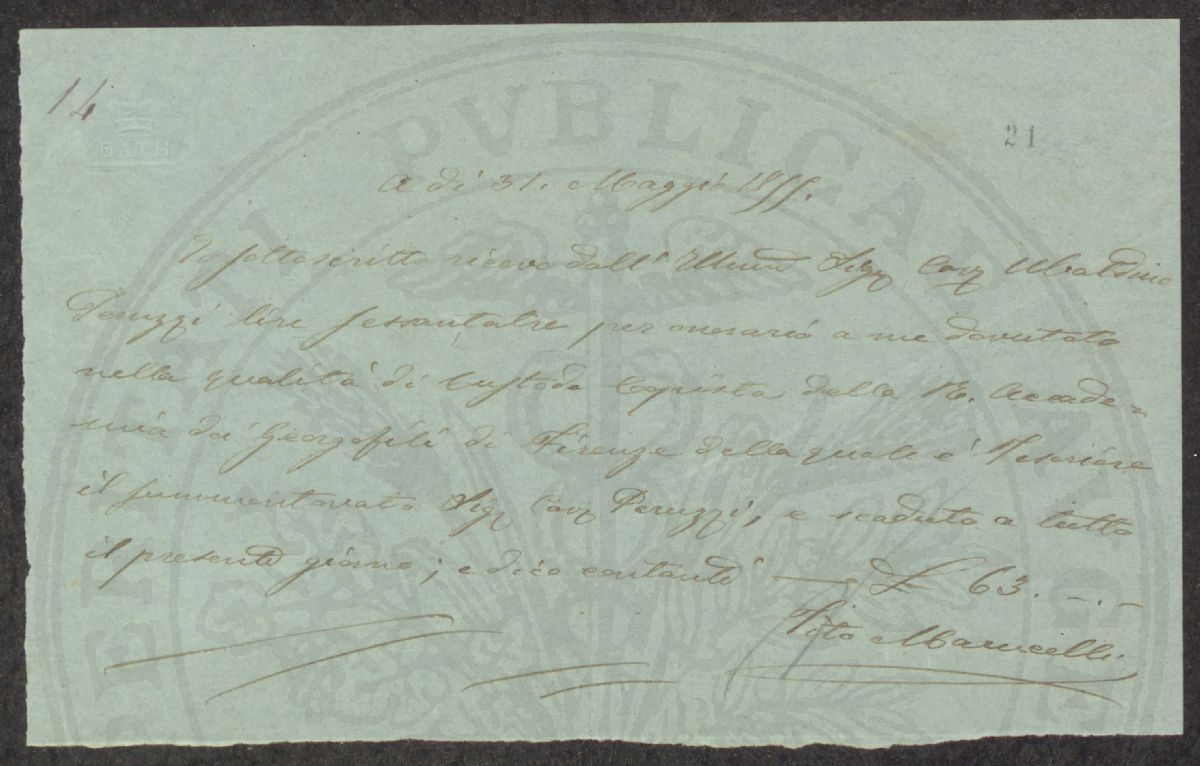 14
BATH
21
A dì 31. Maggio 1855.
Io sottoscritto ricevo dall' Illmo Sigr Cavr Ubaldino
Peruzzi lire sessantatre per onorario a me dovutoto
nella qualità di Custode Copista della R. Accade=
mia dei Georgofili di Firenze della quale è Tesoriere
il summentovato Sigr Cavr Peruzzi, e scaduto a tutto
il presente giorno; e dico contanti — £ 63. -.-
Tito Marucelli